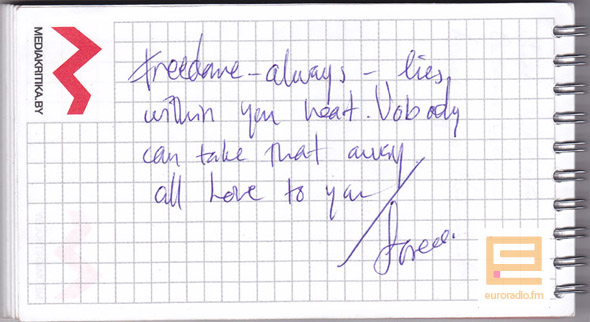 MEDIAKRITIKA.BY
freedome - always - lies
within you heat. Nobody
can take that away
all Love to you
euroradio.fm